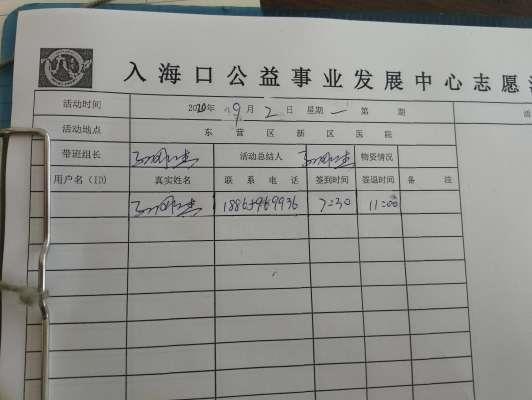 入海口公益事业发展中心志愿
活动时间 2020年9月2日 星期一 第 期
活动地点 东营区新区医院
带班组长 活动总结人 物资情况
用户名（ID） 真实姓名 联系电话 签到时间 签退时间 备注
7:30 11:00